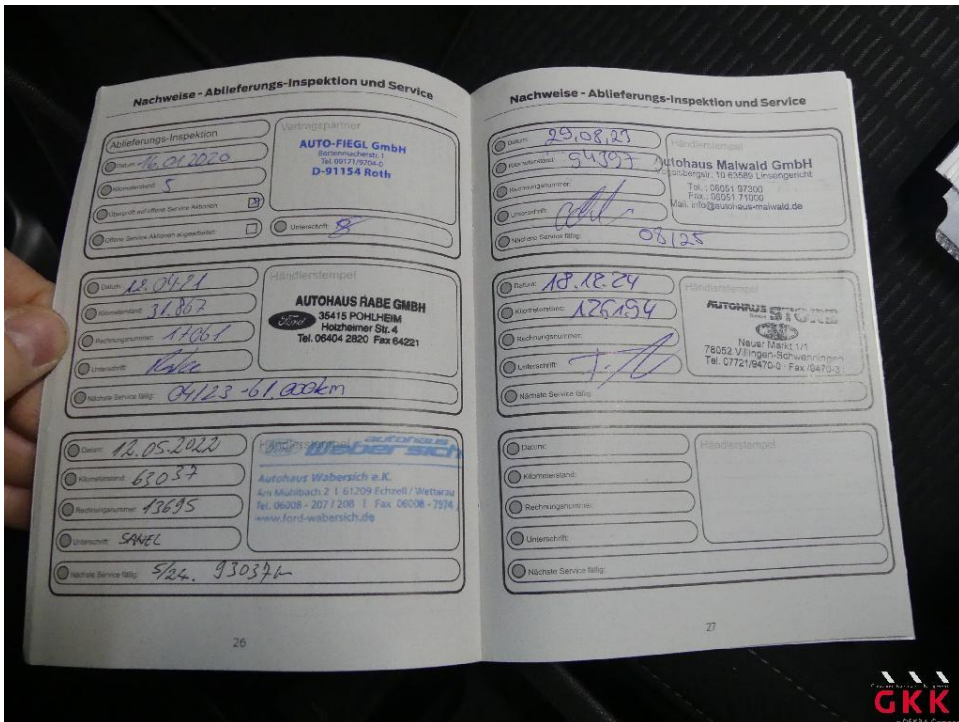 Nachweise - Ablieferungs-Inspektion und Service
Ablieferungs-Inspektion
Datum: 16.01.2020
Kilometerstand: 5
Überprüft auf offene Service Aktionen:
Offene Service Aktionen abgearbeitet:
Vertragspartner
AUTO-FIEGL GmbH
Tel. 09171/9704-0
D-91154 Roth
Unterschrift:
Datum: 12.04.21
Kilometerstand: 31.867
Rechnungsnummer: 17061
Unterschrift:
Nächste Service fällig: 04/23 - 61.000km
Händlerstempel
AUTOHAUS RABE GMBH
Ford
35415 POHLHEIM
Holzheimer Str. 4
Tel. 06404 2820 Fax 64221
Datum: 12.05.2022
Kilometerstand: 63037
Rechnungsnummer: 13695
Unterschrift: SANEL
Nächste Service fällig: 5/24. 93037
Händlerstempel
autohaus
Wabersich
Autohaus Wabersich e.K.
Am Mühlbach 2 | 61209 Echzell / Wetterau
Tel. 06008 - 207 / 208 | Fax 06008 - 7974
www.ford-wabersich.de
26
Nachweise - Ablieferungs-Inspektion und Service
Datum: 29.08.23
Kilometerstand: 94397
Rechnungsnummer:
Unterschrift:
Nächste Service fällig: 08/25
Händlerstempel
Autohaus Maiwald GmbH
10 63589 Linsengericht
Tel.: 06051 97300
Fax.: 06051 71000
Mail: info@autohaus-maiwald.de
Datum: 18.12.24
Kilometerstand: 126194
Rechnungsnummer:
Unterschrift:
Nächste Service fällig:
Händlerstempel
AUTOHAUS
Neuer Markt 1/1
78052 Villingen-Schwenningen
Tel. 07721/9470-0 · Fax /9470-3
Datum:
Kilometerstand:
Rechnungsnummer:
Unterschrift:
Nächste Service fällig:
Händlerstempel
27
GKK